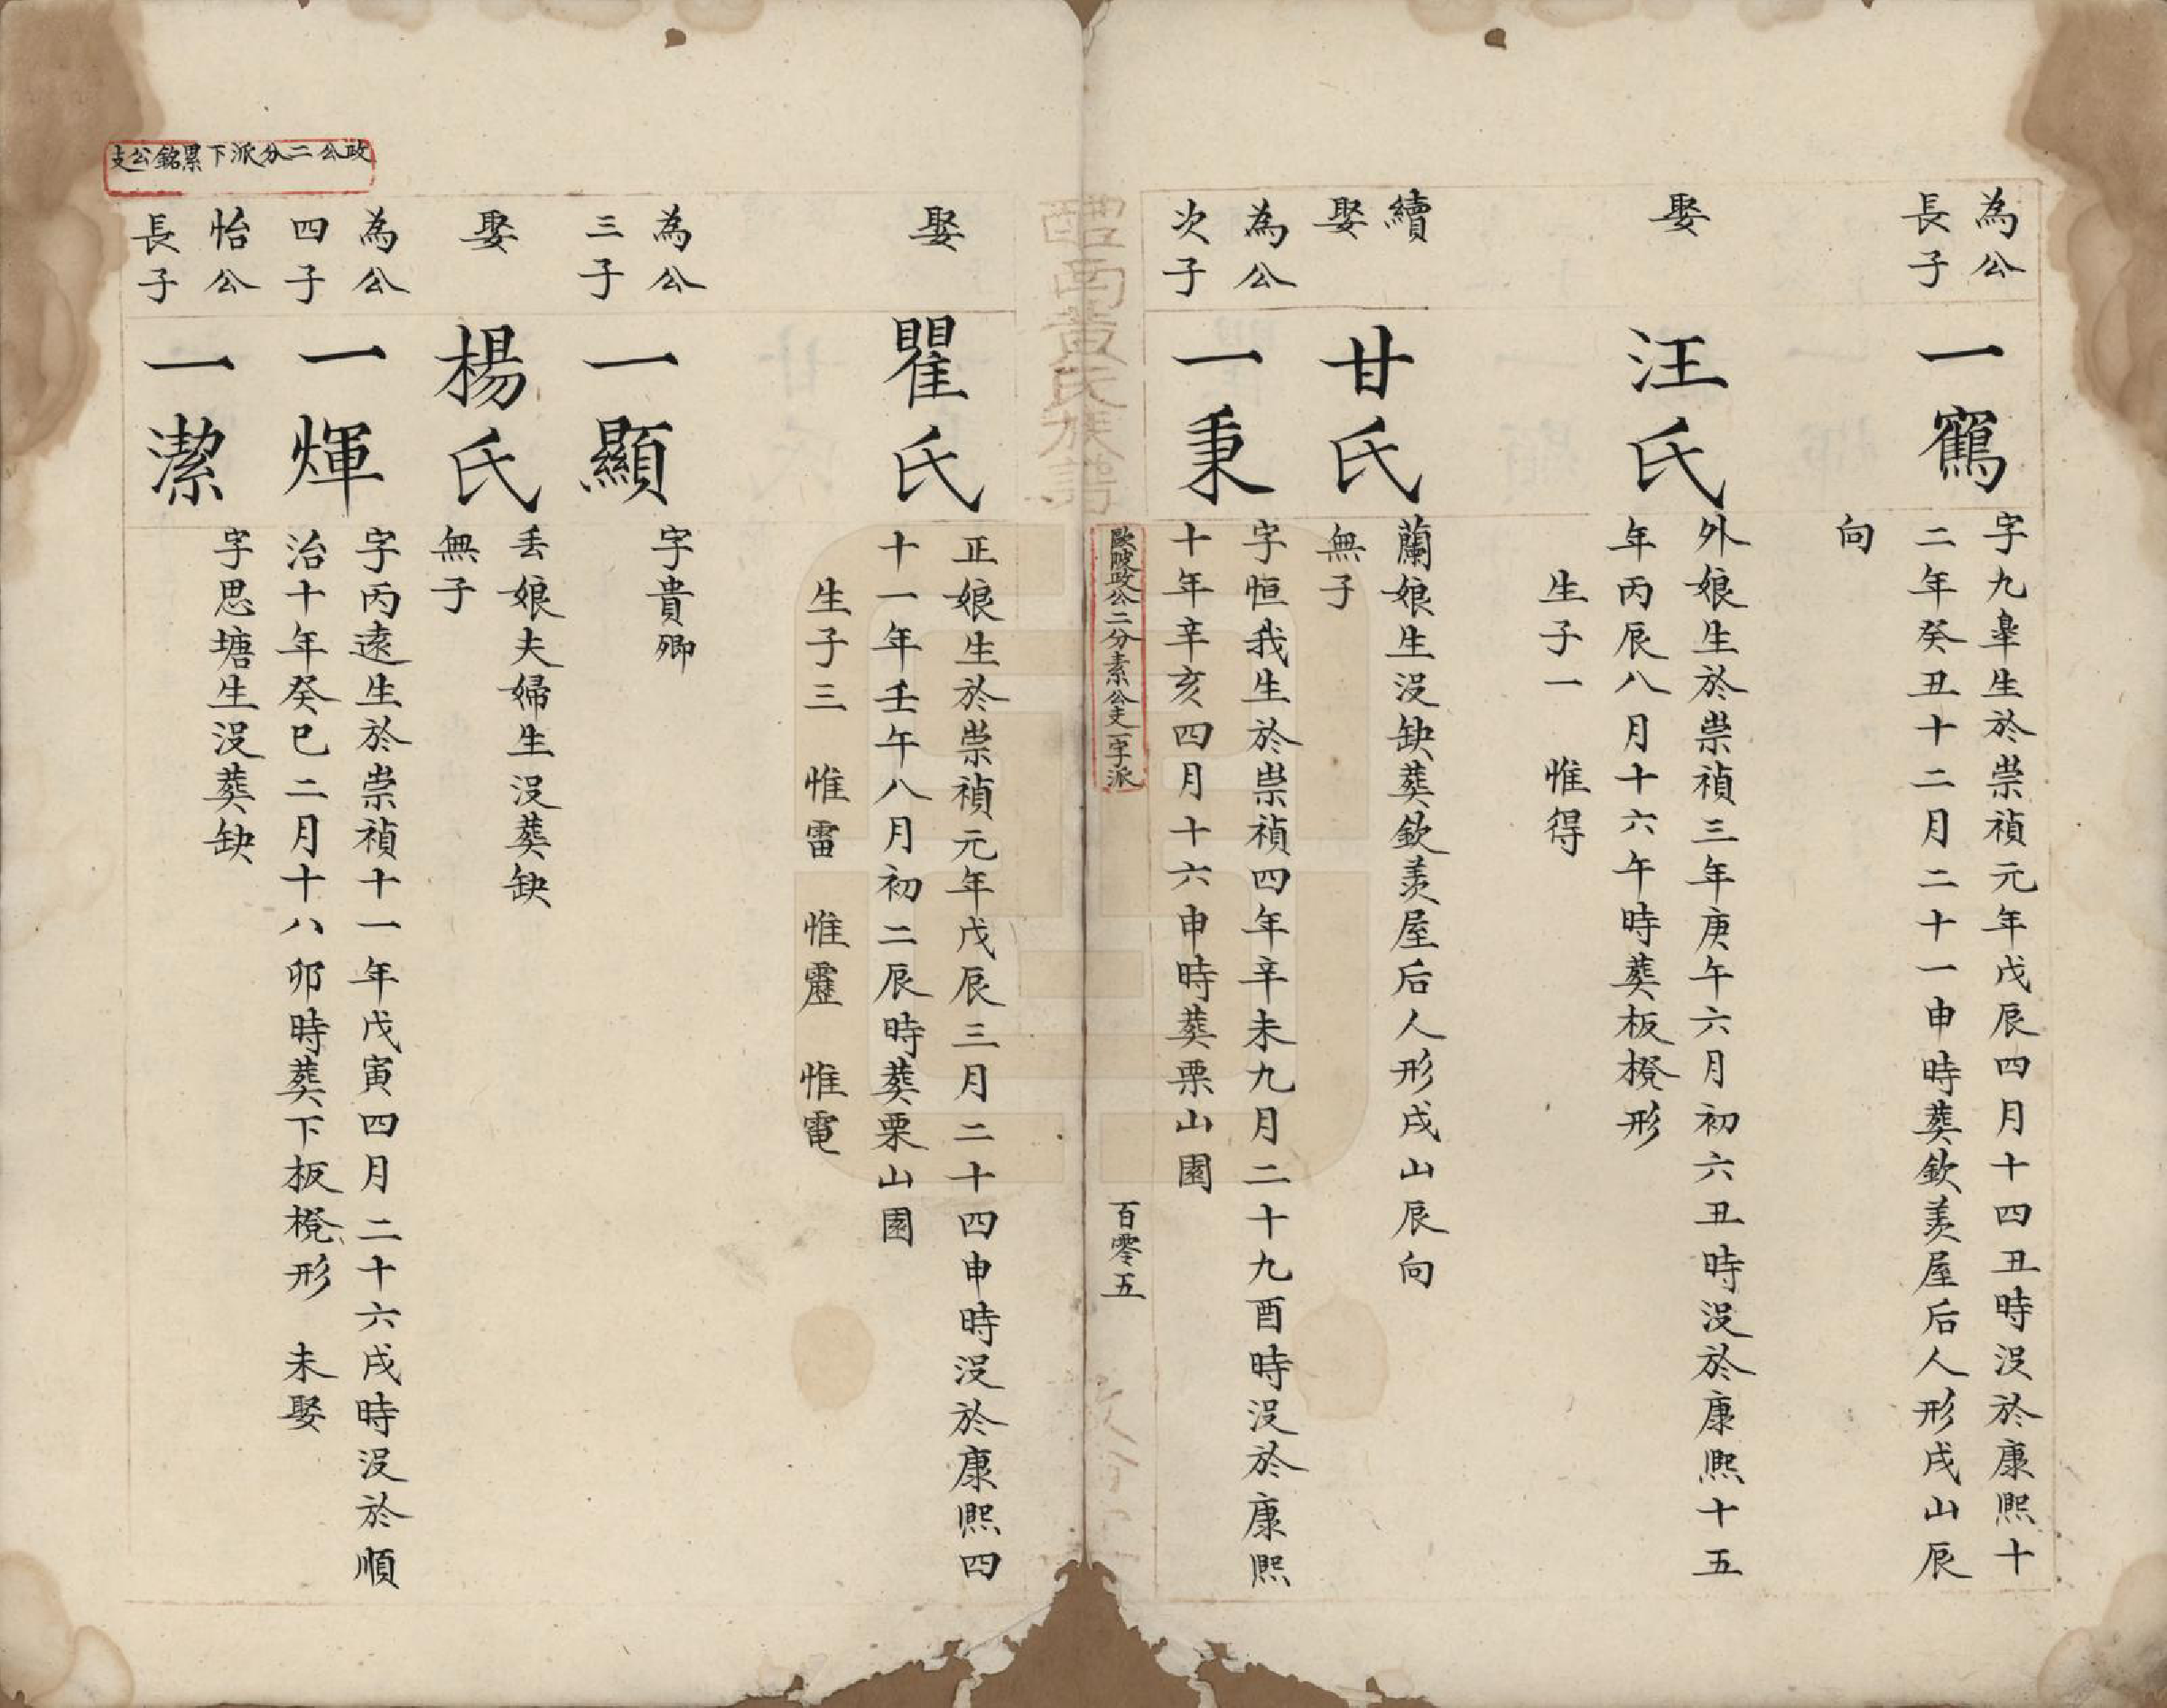 為公
長子
一鶴
字九臯生於崇禎元年戊辰四月十四丑時沒於康熙十
二年癸丑十二月二十一申時葬欽羙屋后人形戌山辰
向
娶
汪氏
外娘生於崇禎三年庚午六月初六丑時沒於康熙十五
年丙辰八月十六午時葬板櫈形
生子一 惟得
續
娶
甘氏
蘭娘生沒缺葬欽羙屋后人形戌山辰向
無子
為公
次子
一秉
字恒我生於崇禎四年辛未九月二十九酉時沒於康熙
十年辛亥四月十六申時葬栗山園
歐陂政公二分素公支一字派
百零五
醴西黃氏族譜
娶
瞿氏
正娘生於崇禎元年戊辰三月二十四申時沒於康熙四
十一年壬午八月初二辰時葬栗山園
生子三 惟雷 惟靂 惟電
為公
三子
一顯
字貴卿
娶
楊氏
丢娘夫婦生沒葬缺
無子
為公
四子
一煇
字丙遠生於崇禎十一年戊寅四月二十六戌時沒於順
治十年癸巳二月十八卯時葬下板櫈形 未娶
政公二分派下累銘公支
怡公
長子
一潔
字思塘生沒葬缺